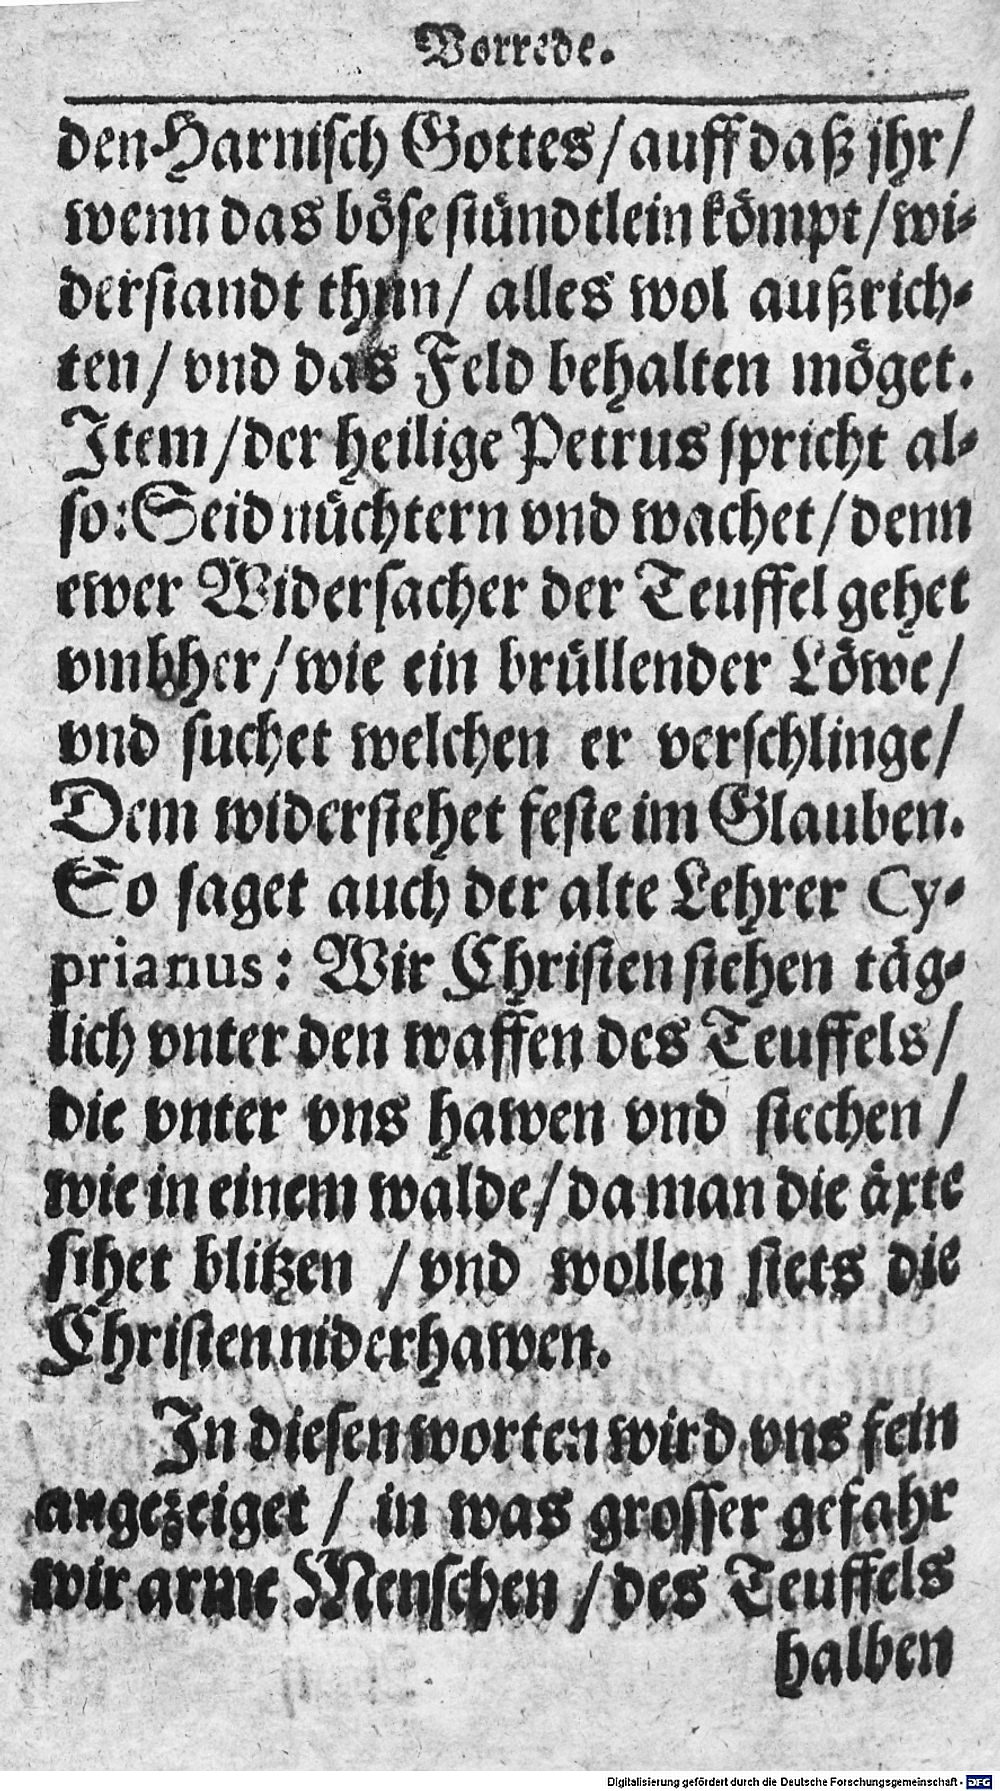 Vorrede.
den Harnisch Gottes / auff daß jhr /
wenn das böse stündtlein kömpt / wi-
derstandt thun / alles wol außrich-
ten / vnd das Feld behalten möget.
Item / der heilige Petrus spricht al-
so: Seid nüchtern vnd wachet / denn
ewer Widersacher der Teuffel gehet
vmbher / wie ein brüllender Löwe /
vnd suchet welchen er verschlinge /
Dem widerstehet feste im Glauben.
So saget auch der alte Lehrer Cy-
prianus: Wir Christen stehen täg-
lich vnter den waffen des Teuffels /
die vnter vns hawen vnd stechen /
wie in einem walde / da man die äxte
sihet blitzen / vnd wollen stets die
Christen niderhawen.
In diesen worten wird vns fein
angezeiget / in was grosser gefahr
wir arme Menschen / des Teuffels
halben
Digitalisierung gefördert durch die Deutsche Forschungsgemeinschaft - DFG